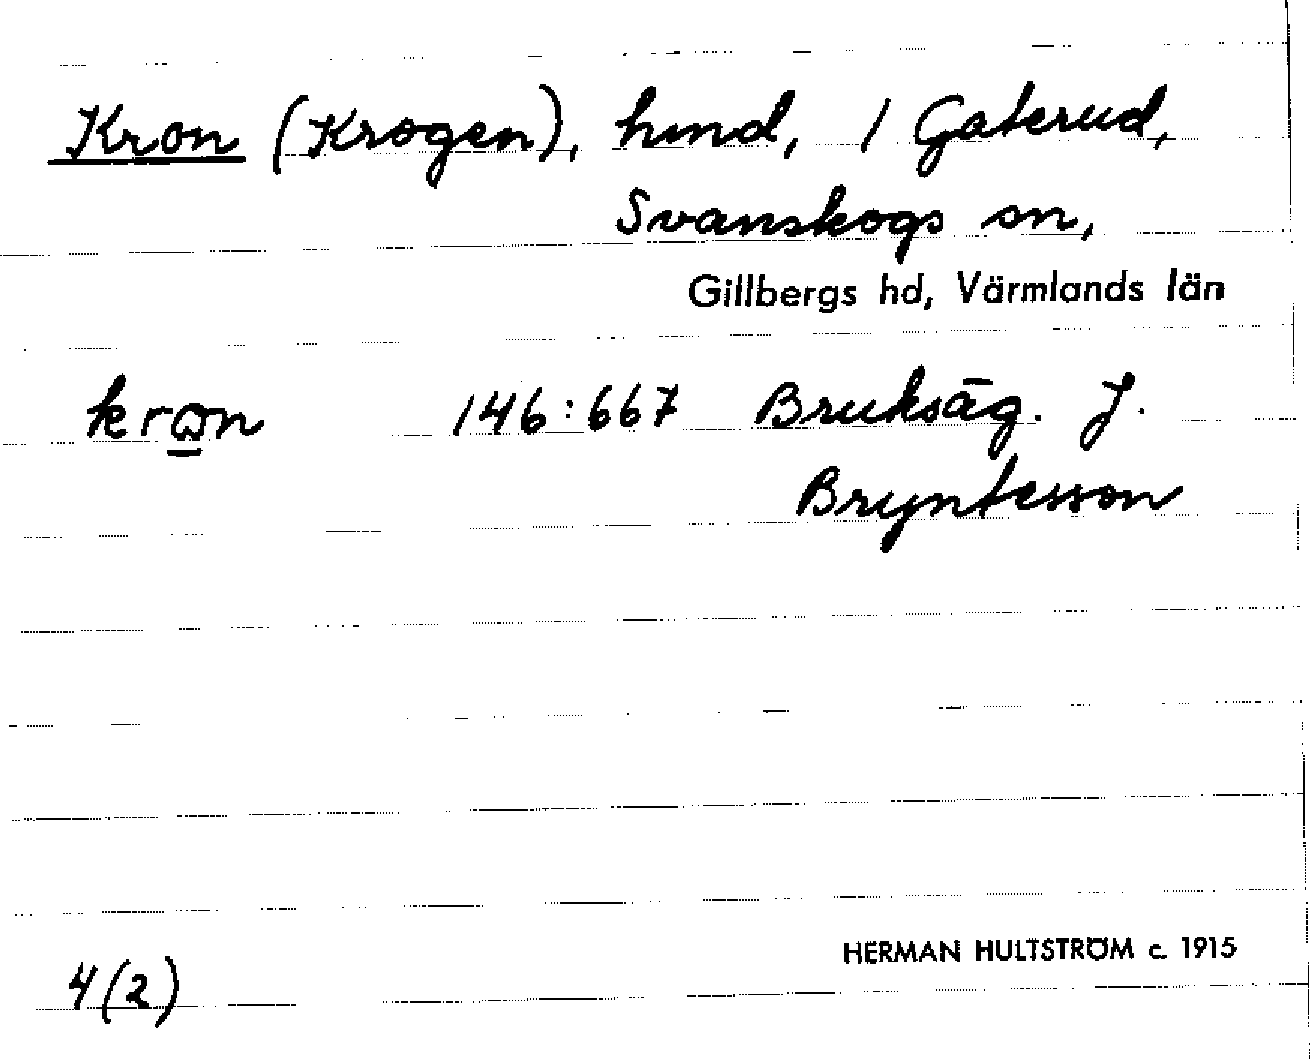 Kron (Krogen), hmd, 1 Gaterud,
Svanskogs sn,
Gillbergs hd, Värmlands län
krɷ̲n 146:667 Bruksäg. J.
Bryntesson
HERMAN HULTSTRÖM c. 1915
4(2)